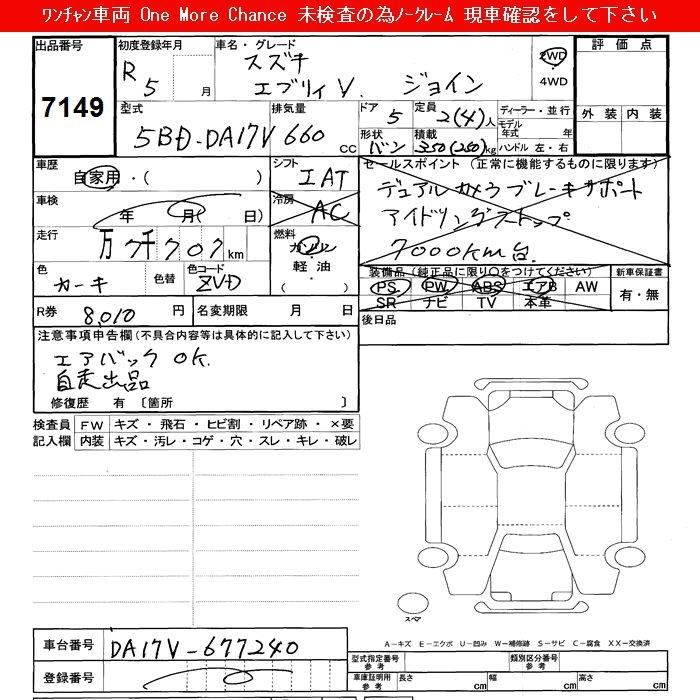 ﾜﾝﾁｬﾝ車両 One More Chance 未検査の為ﾉｰｸﾚｰﾑ 現車確認をして下さい
出品番号 7149
初度登録年月 R 5 月
車名・グレード
スズキ
エブリィV. ジョイン
2WD
4WD
評価点
外装 内装
型式 5BD-DA17V
排気量 660 cc
ドア 5
定員 2(4)人
ディーラー・並行
モデル年式 年
形状 バン
積載 350(250)kg
ハンドル 左・右
車歴 自家用・( )
シフト IAT
セールスポイント(正常に機能するものに限ります)
デュアルカメラブレーキサポート
アイドリングストップ
7000km台.
車検 年 月( 日)
冷房 AC
走行 万7千707km
燃料 ガソリン
軽油
( )
色 カーキ 色替
色コード ZVD
装備品(純正品に限り〇をつけてください)
PS PW ABS エアB AW
SR ナビ TV 本革
新車保証書
有・無
R券 8,010 円
名変期限 月 日
後日品
注意事項申告欄(不具合内容等は具体的に記入して下さい)
エアバック OK.
自走出品
修復歴 有 〔箇所 〕
検査員記入欄
FW キズ・飛石・ヒビ割・リペア跡・×要
内装 キズ・汚レ・コゲ・穴・スレ・キレ・破レ
スペア
A－キズ E－エクボ U－凹み W－補修跡 S－サビ C－腐食 XX－交換済
車台番号 DA17V-677240
登録番号
型式指定番号 参考
類別区分番号 参考
車庫証明用 参考
長さ cm 幅 cm 高さ cm